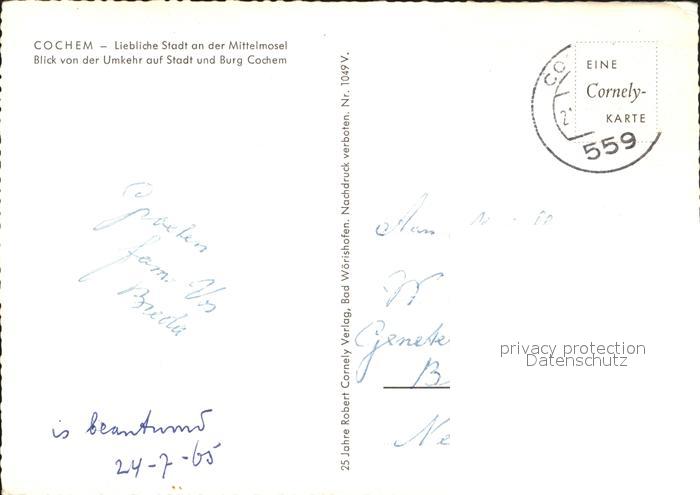 COCHEM – Liebliche Stadt an der Mittelmosel
Blick von der Umkehr auf Stadt und Burg Cochem
Groeten
fam. Vos
Breda
is beantwoord
24-7-65
25 Jahre Robert Cornely Verlag, Bad Wörishofen. Nachdruck verboten. Nr. 1049 V.
EINE
Cornely-
KARTE
CO
559
Aan
W
Genete
B
Ne
privacy protection
Datenschutz